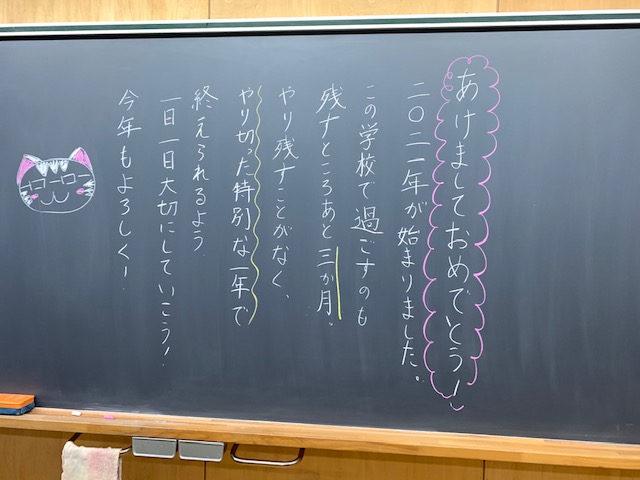 あけましておめでとう!
二〇二一年が始まりました。
この学校で過ごすのも
残すところあと三か月。
やり残すことがなく、
やり切った特別な一年で
終えられるよう
一日一日大切にしていこう!
今年もよろしく!